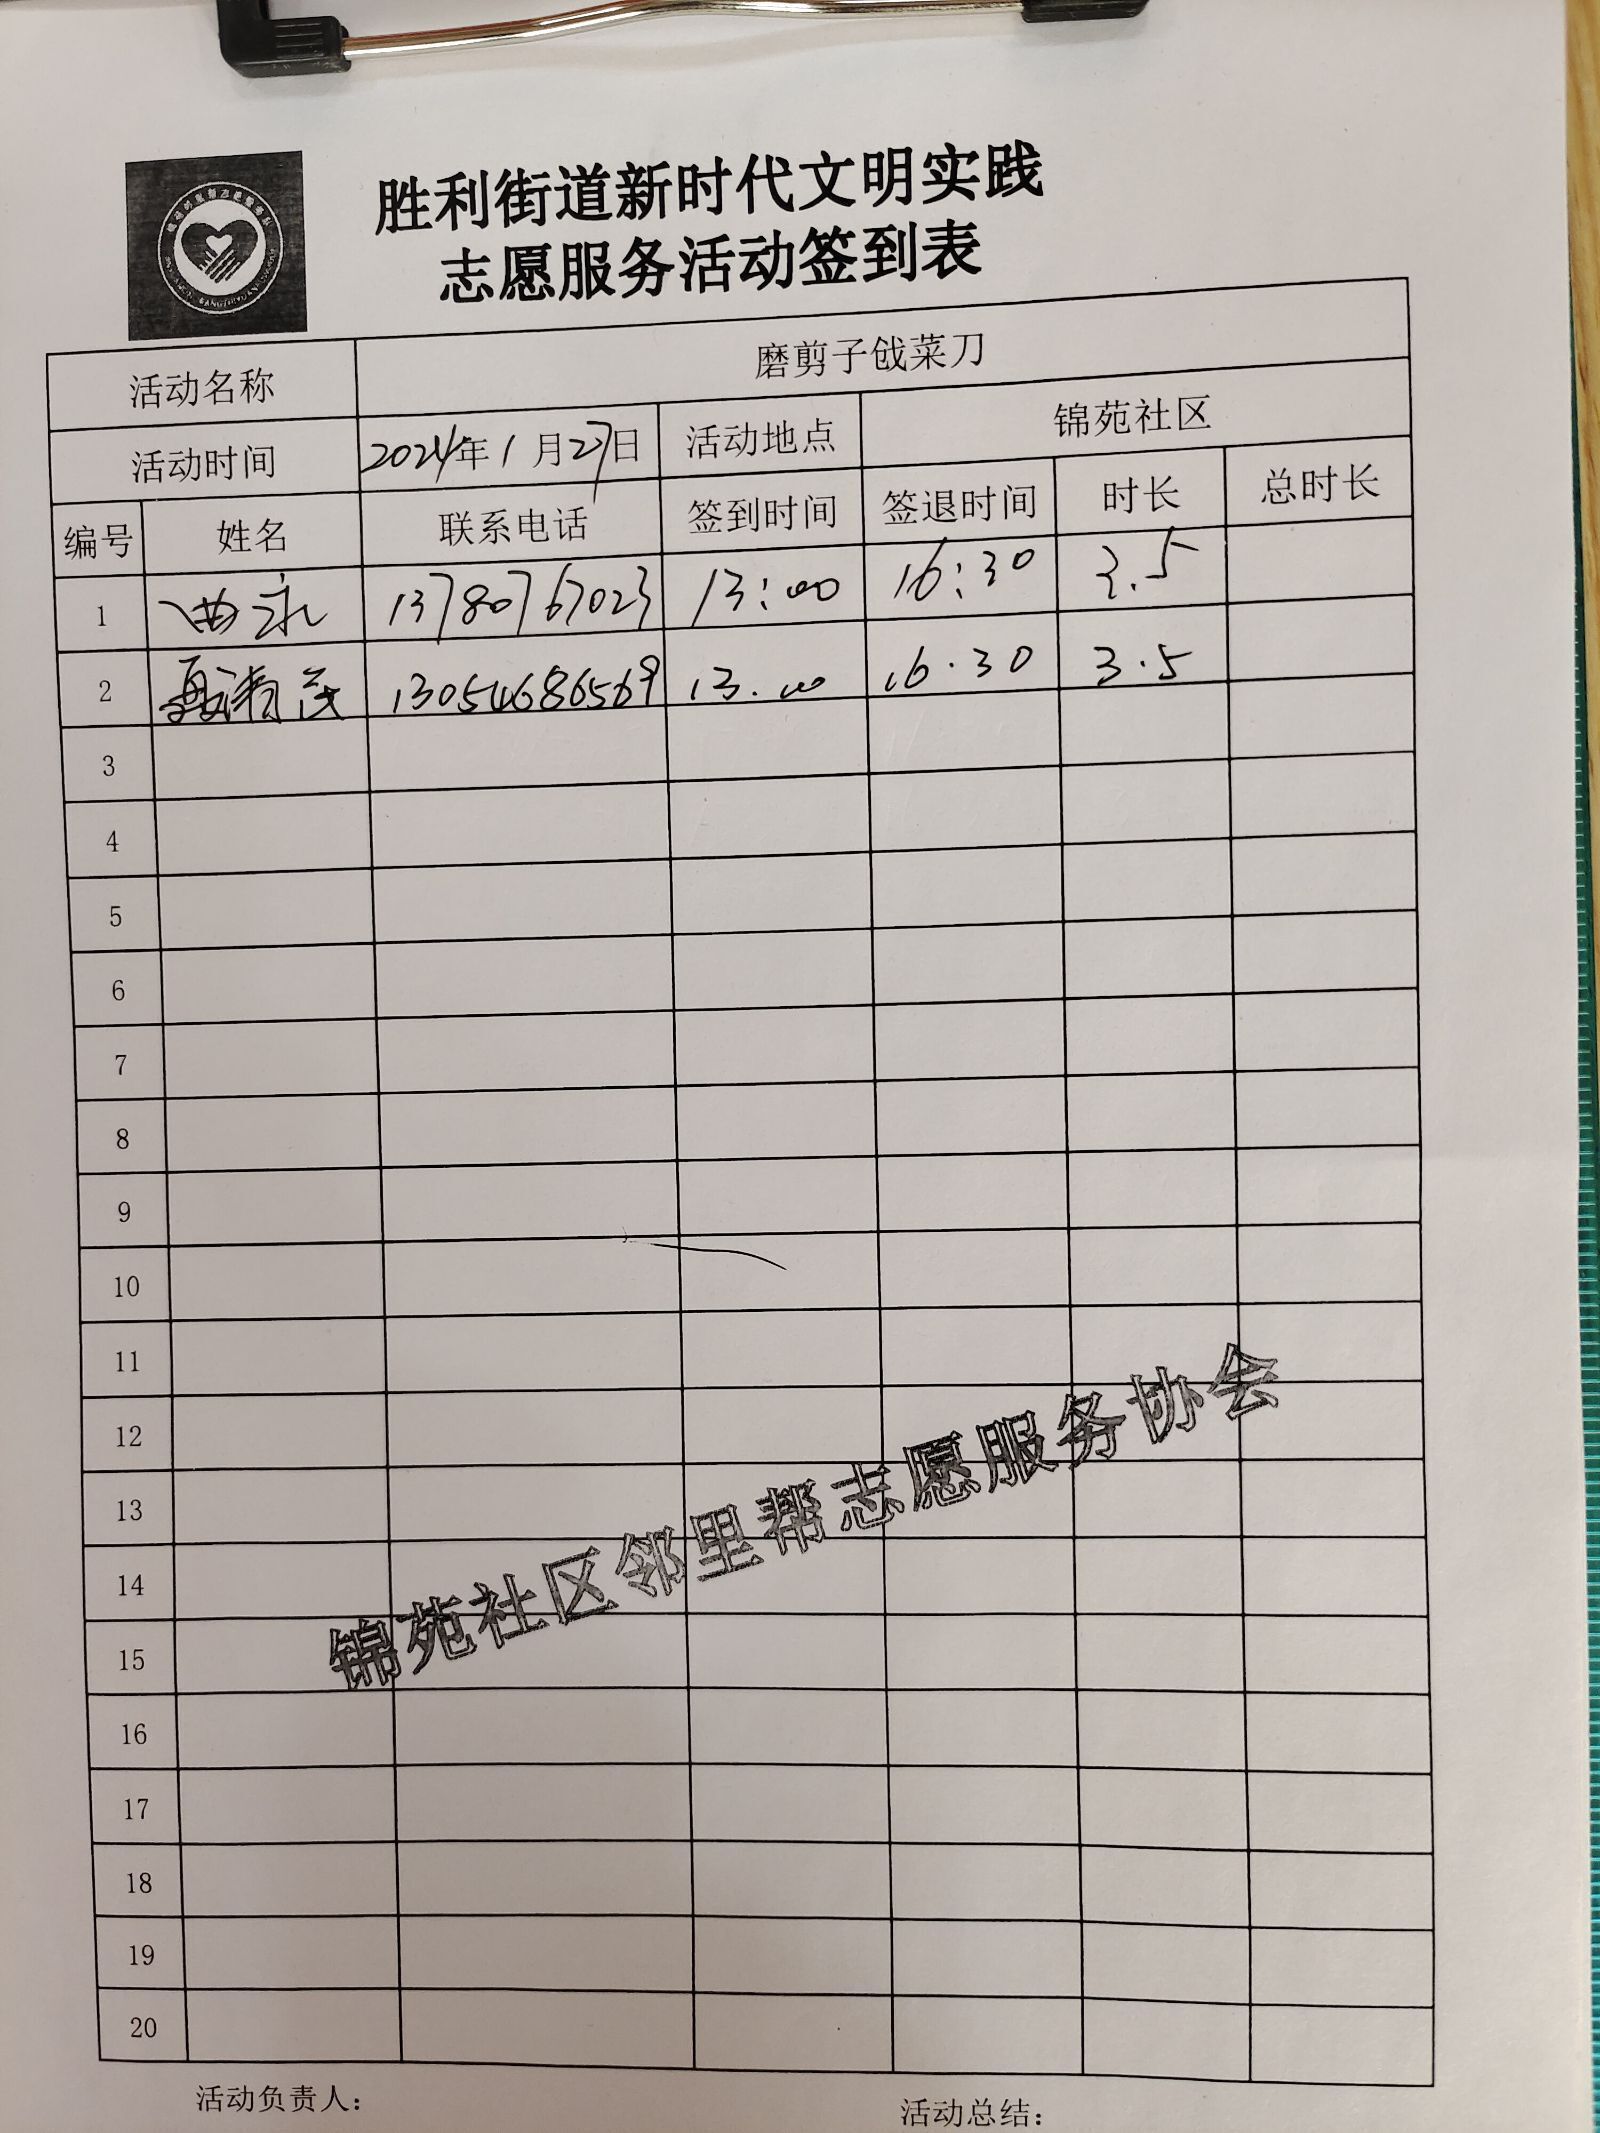 胜利街道新时代文明实践
志愿服务活动签到表
活动名称 磨剪子戗菜刀
活动时间 2024年1月27日 活动地点 锦苑社区
编号 姓名 联系电话 签到时间 签退时间 时长 总时长
1 曲永 13780767023 13:00 16:30 3.5
2 13054686569 13.00 16.30 3.5
3
4
5
6
7
8
9
10
11
12
13
14
15
16
17
18
19
20
锦苑社区邻里帮志愿服务协会
活动负责人：
活动总结：